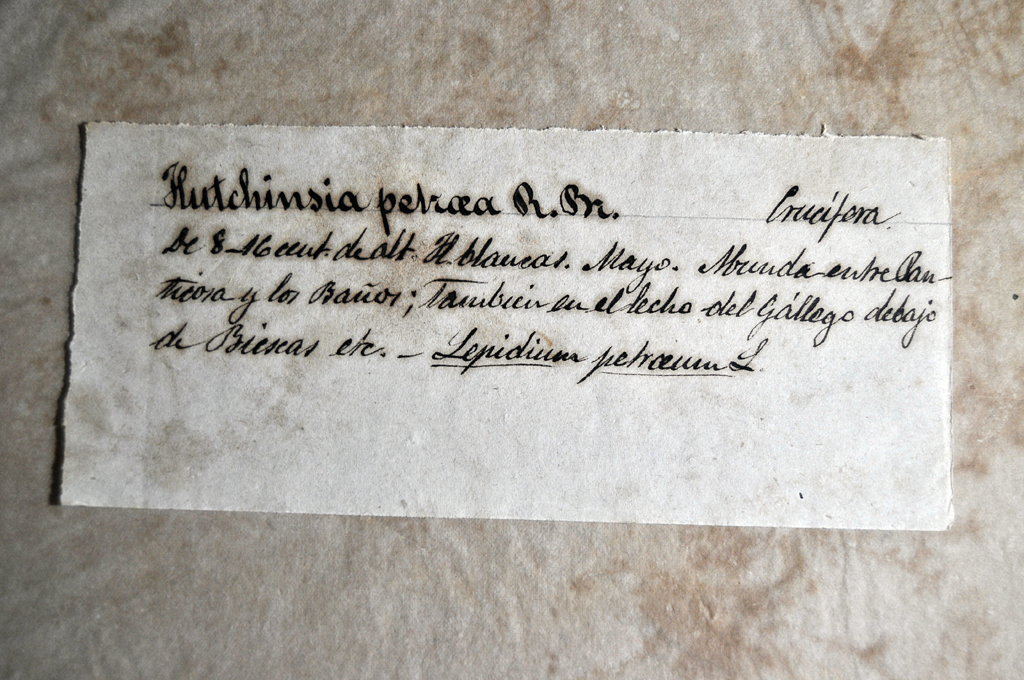 Hutchinsia petræa R. Br. Crucífera.
De 8-16 cent. de alt. Fl blancas. Mayo. Abunda entre Pan-
ticosa y los Baños; También en el lecho del Gállego debajo
de Biescas etc. - Lepidium petræum L.